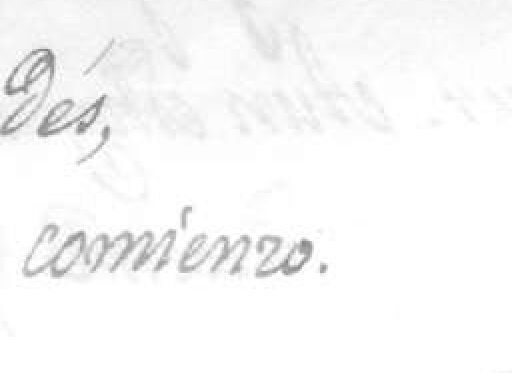 Dés,
comienzo.